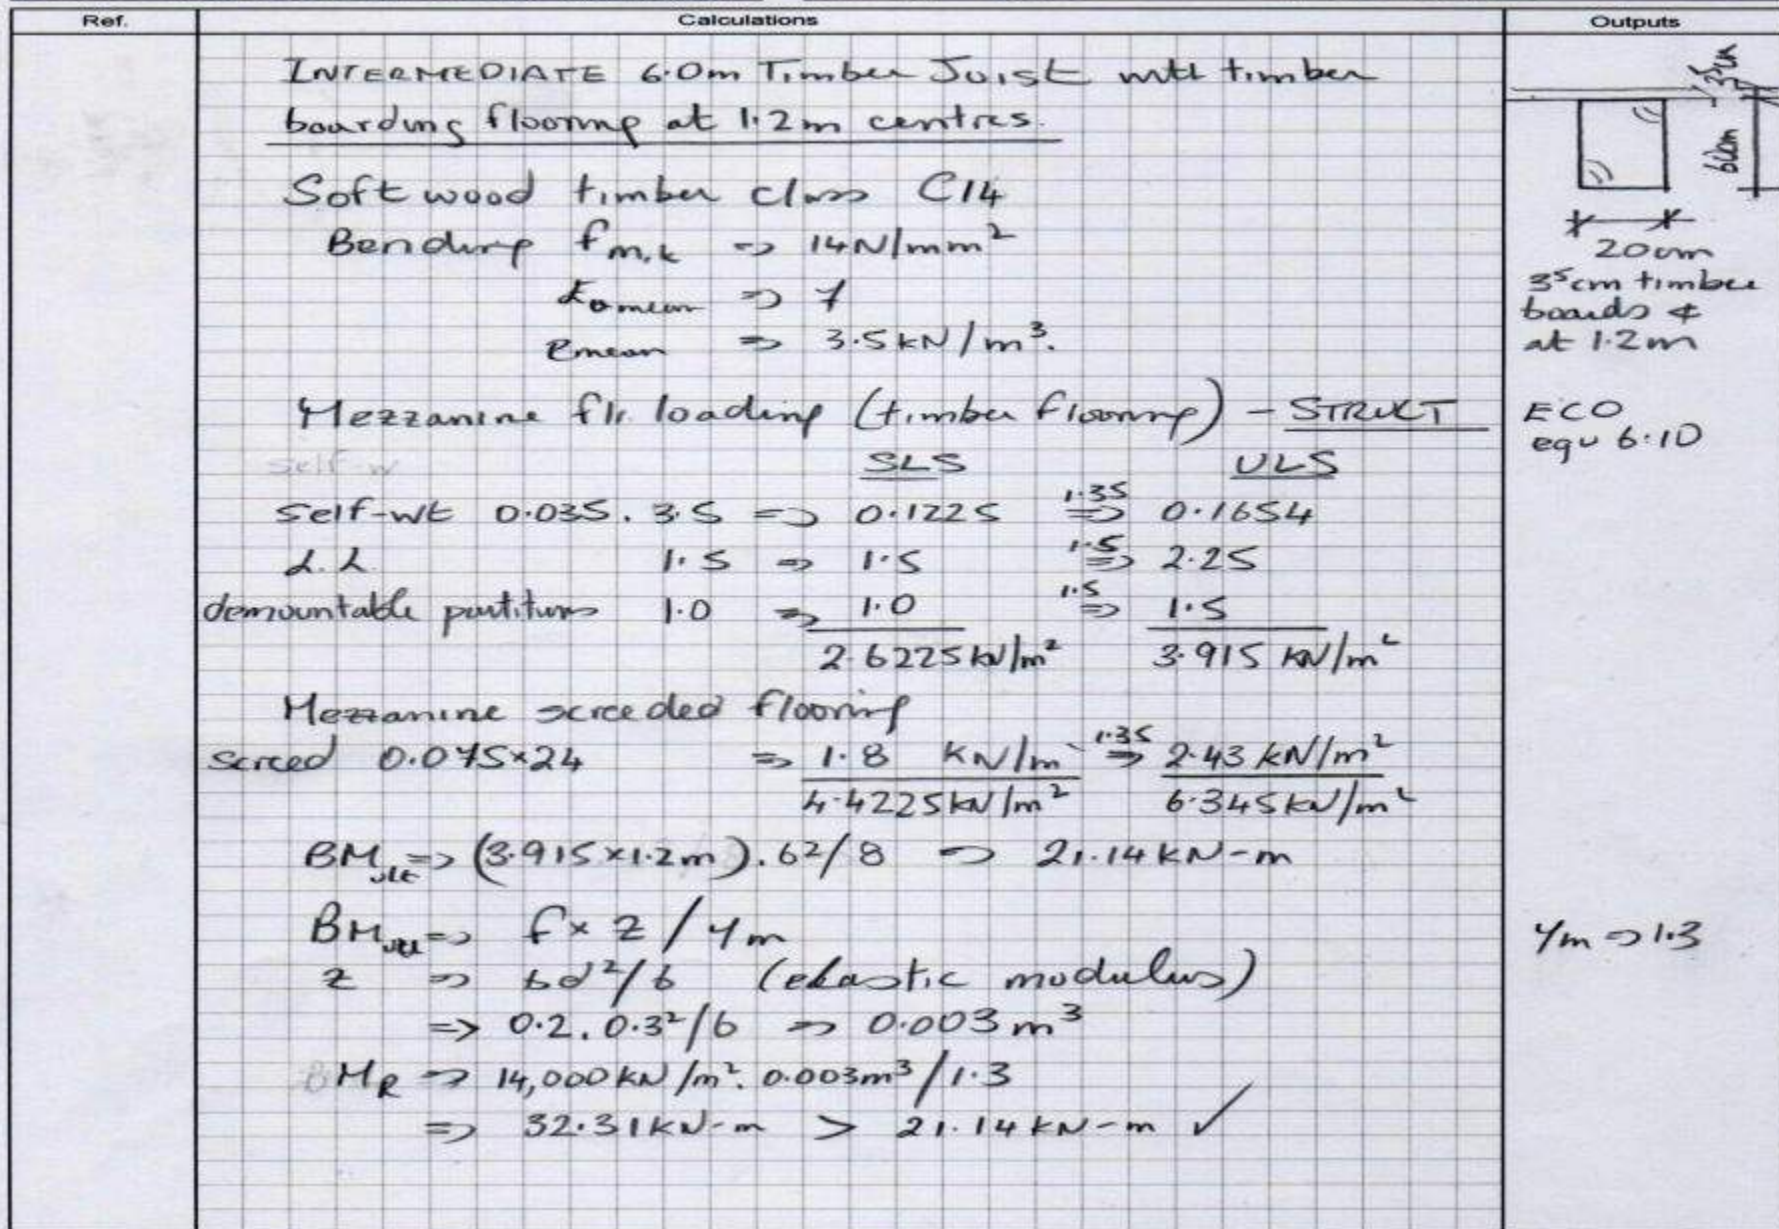 Ref.
Calculations
Outputs
INTERMEDIATE 6.0m Timber Joist with timber
boarding flooring at 1.2m centres.
Softwood timber class C14
Bending fm,k => 14N/mm²
E0mean => 7
ρmean => 3.5kN/m³.
20cm
3⁵cm timber
boards &
at 1.2m
Mezzanine flr. loading (timber flooring) - STRUCT
EC0
equ 6.10
self-w
SLS ULS
self-wt 0.035 . 3.5 => 0.1225 1.35 => 0.1654
L.L. 1.5 => 1.5 1.5 => 2.25
demountable partitions 1.0 => 1.0 1.5 => 1.5
2.6225kN/m² 3.915 kN/m²
Mezzanine screeded flooring
screed 0.075×24 => 1.8 kN/m 1.35 => 2.43 kN/m²
4.4225kN/m² 6.345kN/m²
BMult => (3.915×1.2m).62/8 => 21.14kN-m
BMult => f×z/γm
γm => 1.3
z => bd²/6 (elastic modulus)
=> 0.2.0.3²/6 => 0.003m³
BMR => 14,000kN/m². 0.003m³/1.3
=> 32.31kN-m > 21.14kN-m ✓